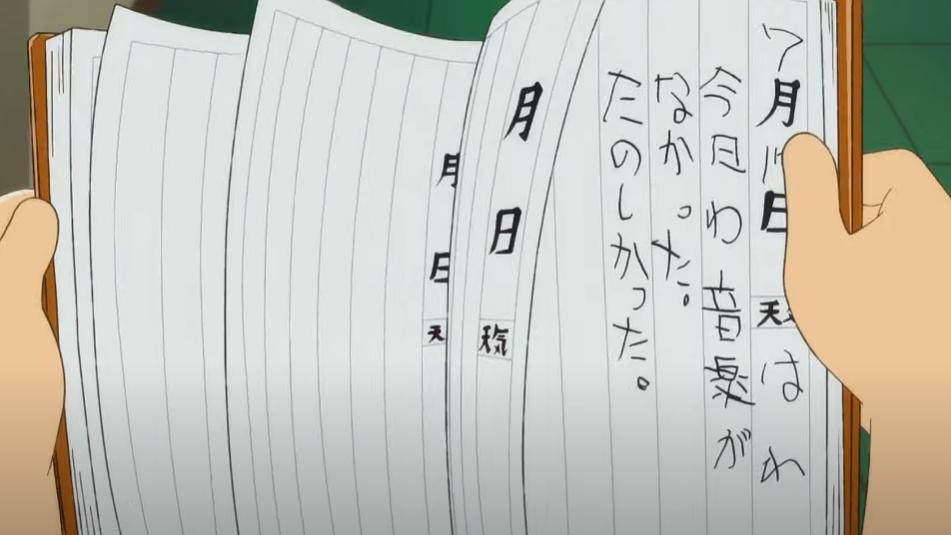 7月 日 天 はれ
今日わ音楽が
なかった。
たのしかった。
月 日 天気
月 日 天